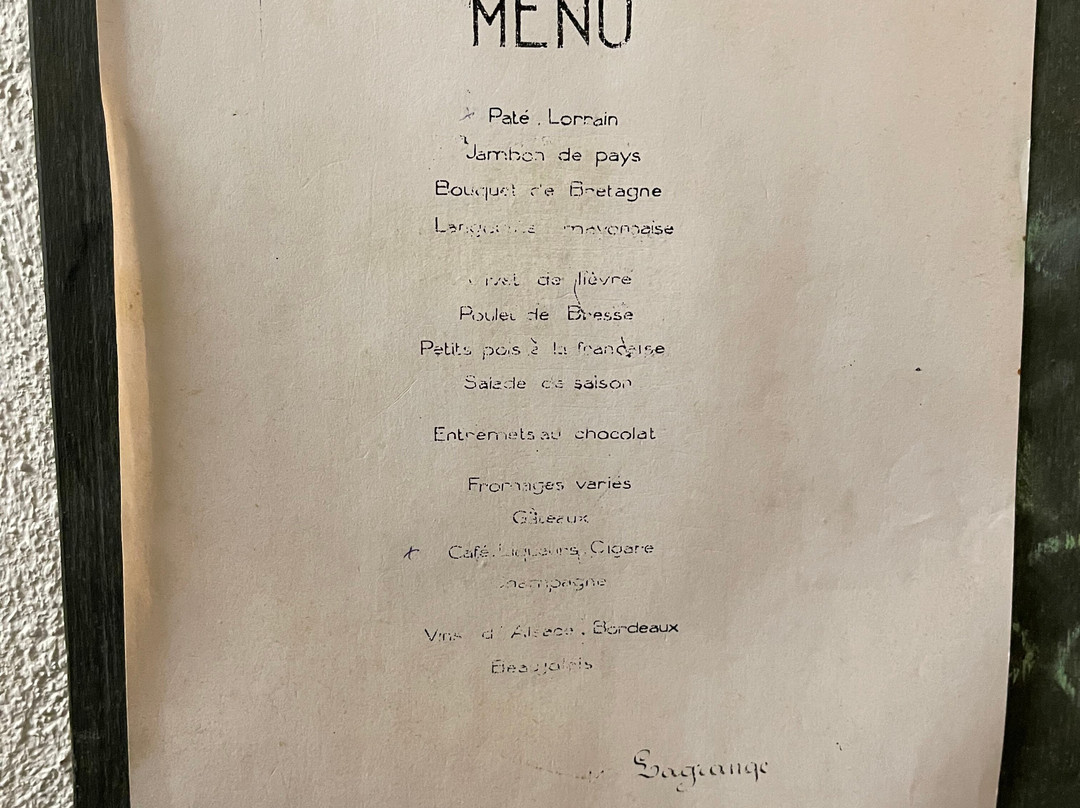 MENU
Paté . Lorrain
Jambon de pays
Bouquet de Bretagne
Langouste mayonnaise
Civet de lièvre
Poulet de Bresse
Petits pois à la française
Salade de saison
Entremets au chocolat
Fromages variés
Gâteaux
Café . Liqueurs . Cigare
Champagne
Vins d'Alsace . Bordeaux
Beaujolais
Lagrange